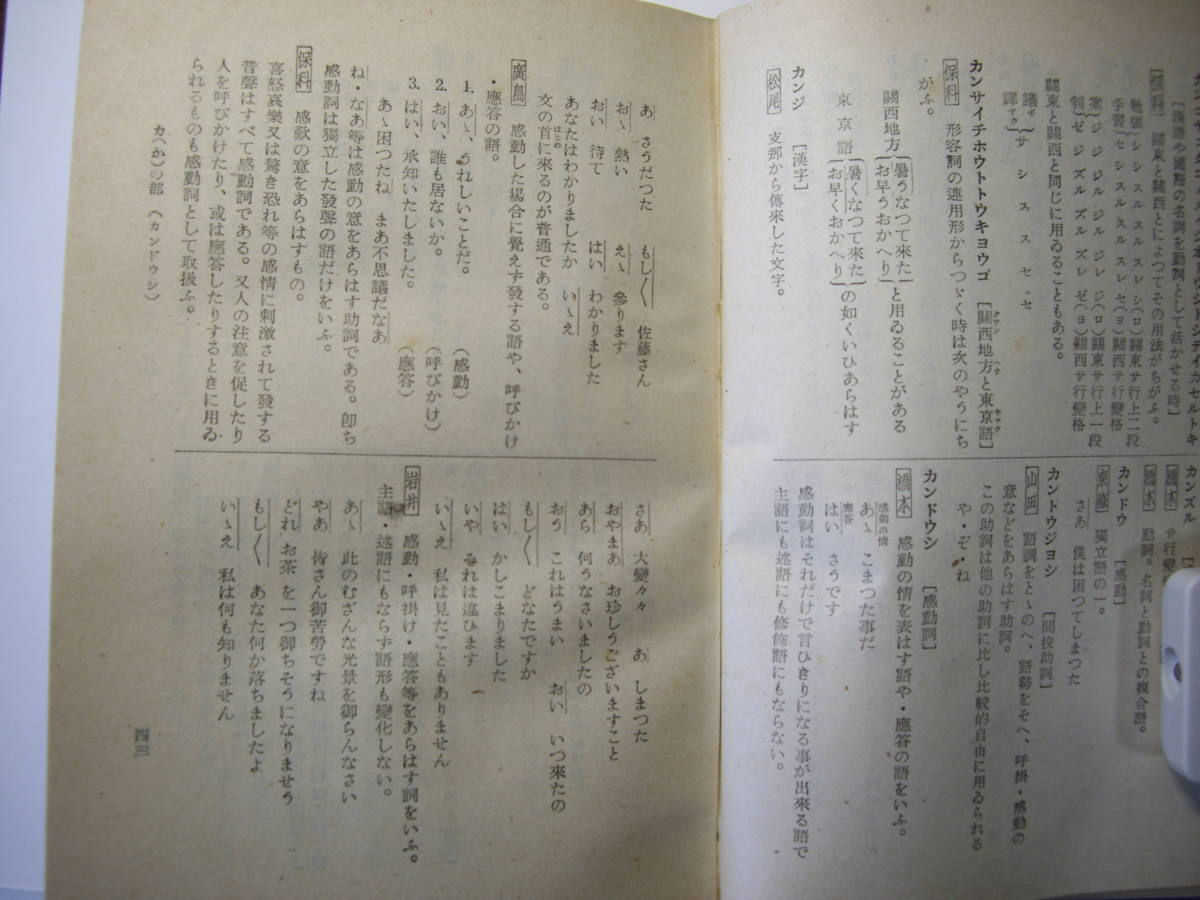 〔漢語や國語の名詞を動詞として活かせる時〕
關東と關西とによつてその用法がちがふ。
關東と關西と同じに用ゐることもある。
カンサイチホウトトウキョウゴ 〔關西地方と東京語〕
クワン ハウ キヤウ
保科 形容詞の連用形からつゞく時は次のやうにち
がふ。
關西地方{暑うなつて來た お早うおかへり}と用ゐることがある
東京語{暑くなつて來た お早くおかへり}の如くいひあらはす
カンジ 〔漢字〕
松尾 支那から傳來した文字。
カンズル
橋本 動詞。名詞と動詞との複合語。
カンドウ 〔感動〕
獨立語の一。
さあ 僕は困つてしまつた
カントウジョシ 〔間投助詞〕
山田 語調をとゝのへ、語勢をそへ、呼掛・感動の
意などをあらはす助詞。
この助詞は他の助詞に比し比較的自由に用ゐられる
や・ぞ・ね
カンドウシ 〔感動詞〕
橋本 感動の情を表はす語や・應答の語をいふ。
感動の情
あゝ こまつた事だ
應答
はい さうです
感動詞はそれだけで言ひきりになる事が出來る語で
主語にも述語にも修飾語にもならない。
あ さうだつた もし〳〵 佐藤さん
おゝ 熱い えゝ 參ります
おい 待て はい わかりました
あなたはわかりましたか いゝえ
文の首に來るのが普通である。
はじめ
廣島 感動した場合に覺えず發する語や、呼びかけ
・應答の語。
1. あゝ、うれしいことだ。 (感動)
2. おい、誰も居ないか。 (呼びかけ)
3. はい、承知いたしました。 (應答)
あゝ困つたね まあ不思議だなあ
ね・なあ等は感動の意をあらはす助詞である。卽ち
感動詞は獨立した發聲の語だけをいふ。
保科 感歎の意をあらはすもの。
喜怒哀樂又は驚き恐れ等の感情に刺激されて發する
音聲はすべて感動詞である。又人の注意を促したり
人を呼びかけたり、或は應答したりするときに用ゐ
られるものも感動詞として取扱ふ。
さあ 大變々々 あ しまつた
おやまあ お珍しうございますこと
あら 何うなさいましたの
おう これはうまい おい いつ來たの
もし〳〵 どなたですか
はい かしこまりました
いや それは違ひます
いゝえ 私は見たこともありません
岩井 感動・呼掛け・應答等をあらはす詞をいふ。
主語・述語にもならず語形も變化しない。
あゝ 此のむざんな光景を御らんなさい
やあ 皆さん御苦勞ですね
どれ お茶を一つ御ちそうになりませう
もし〳〵 あなた何か落ちましたよ
いゝえ 私は何も知りません
カ(か)の部 (カンドウシ)
四三